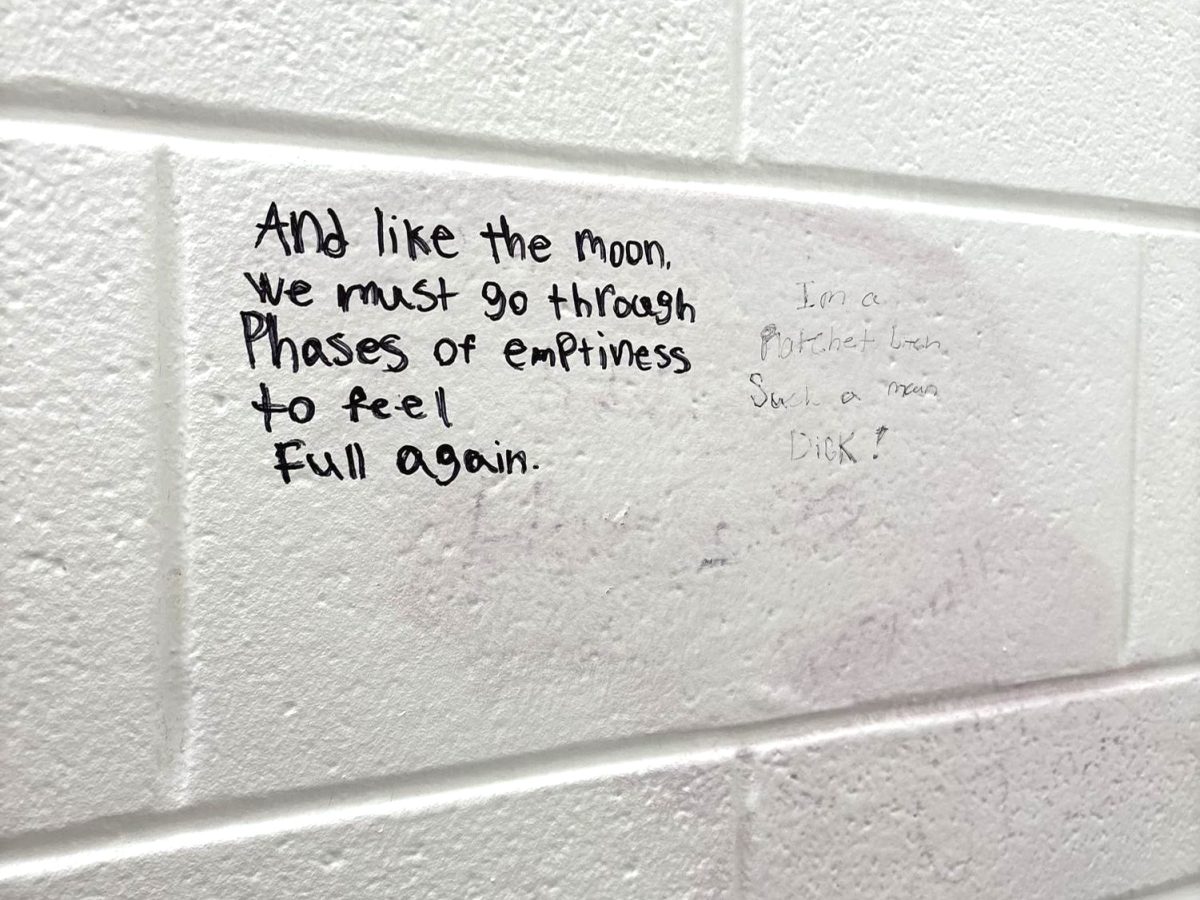 And like the moon,
we must go through
Phases of emptiness
to feel
Full again.
Im a
Ratchet
Such a mean
DicK!